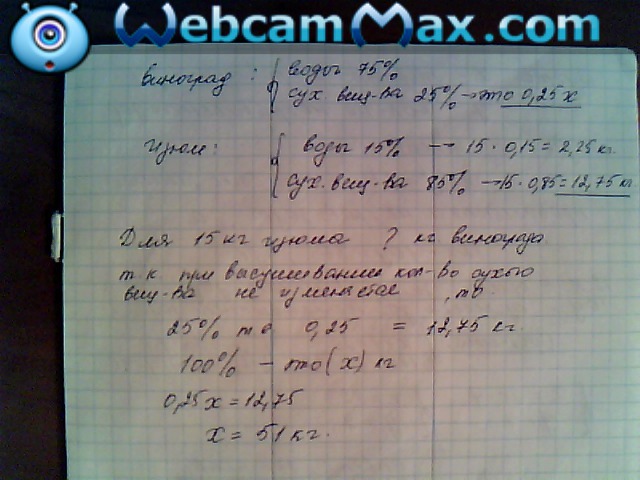 WebcamMax.com
виноград : { воды 75%
сух. вещ-ва 25% → это 0,25 x
изюм: { воды 15% — 15 · 0,15 = 2,25 кг.
сух. вещ-ва 85% → 15 · 0,85 = 12,75 кг
Для 15 кг изюма ? кг винограда
т к при высушивании кол-во сухого
вещ-ва не изменяется , то
25% то 0,25 = 12,75 кг.
100% – это (x) кг
0,25x = 12,75
x = 51 кг.